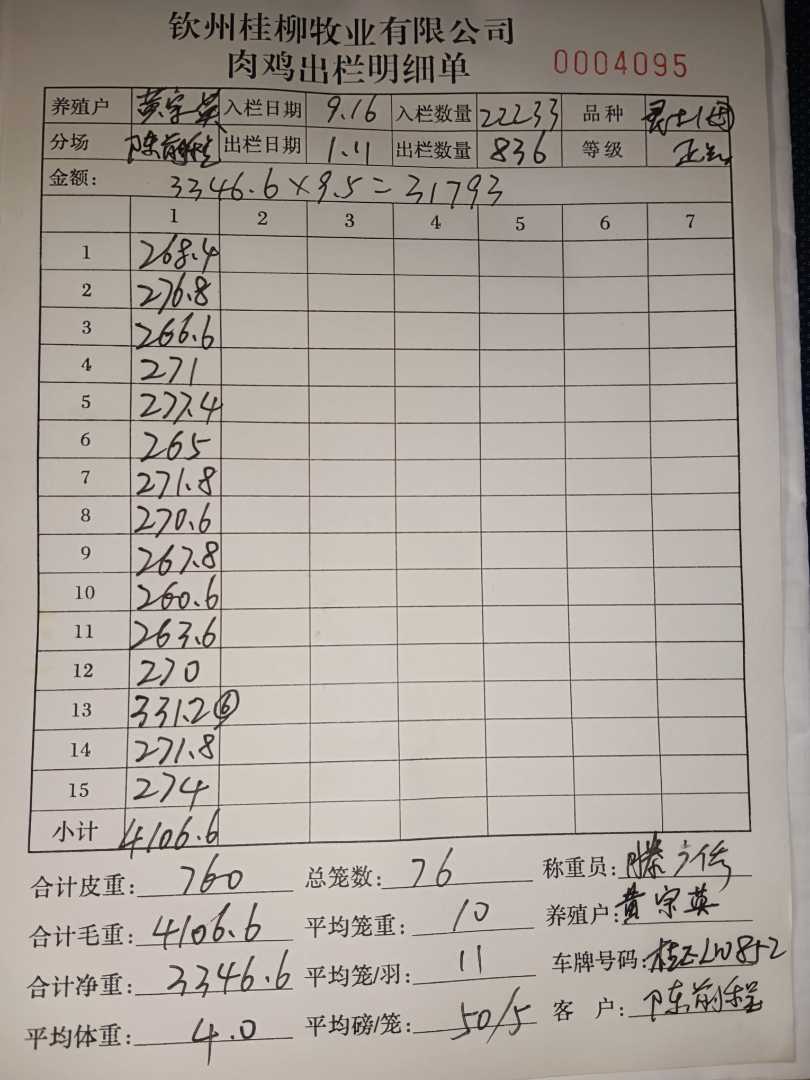 钦州桂柳牧业有限公司
肉鸡出栏明细单 0004095
养殖户 黄宗英 入栏日期 9.16 入栏数量 22233 品种
分场 陈前程 出栏日期 1.11 出栏数量 836 等级
金额: 3346.6×9.5=31793
1 2 3 4 5 6 7
1 268.4
2 276.8
3 266.6
4 271
5 277.4
6 265
7 271.8
8 270.6
9 267.8
10 260.6
11 263.6
12 270
13 331.2 ⑥
14 271.8
15 274
小计 4106.6
合计皮重: 760 总笼数: 76 称重员:
合计毛重: 4106.6 平均笼重: 10 养殖户: 黄宗英
合计净重: 3346.6 平均笼/羽: 11 车牌号码:
平均体重: 4.0 平均磅/笼: 50/5 客 户: 陈前程